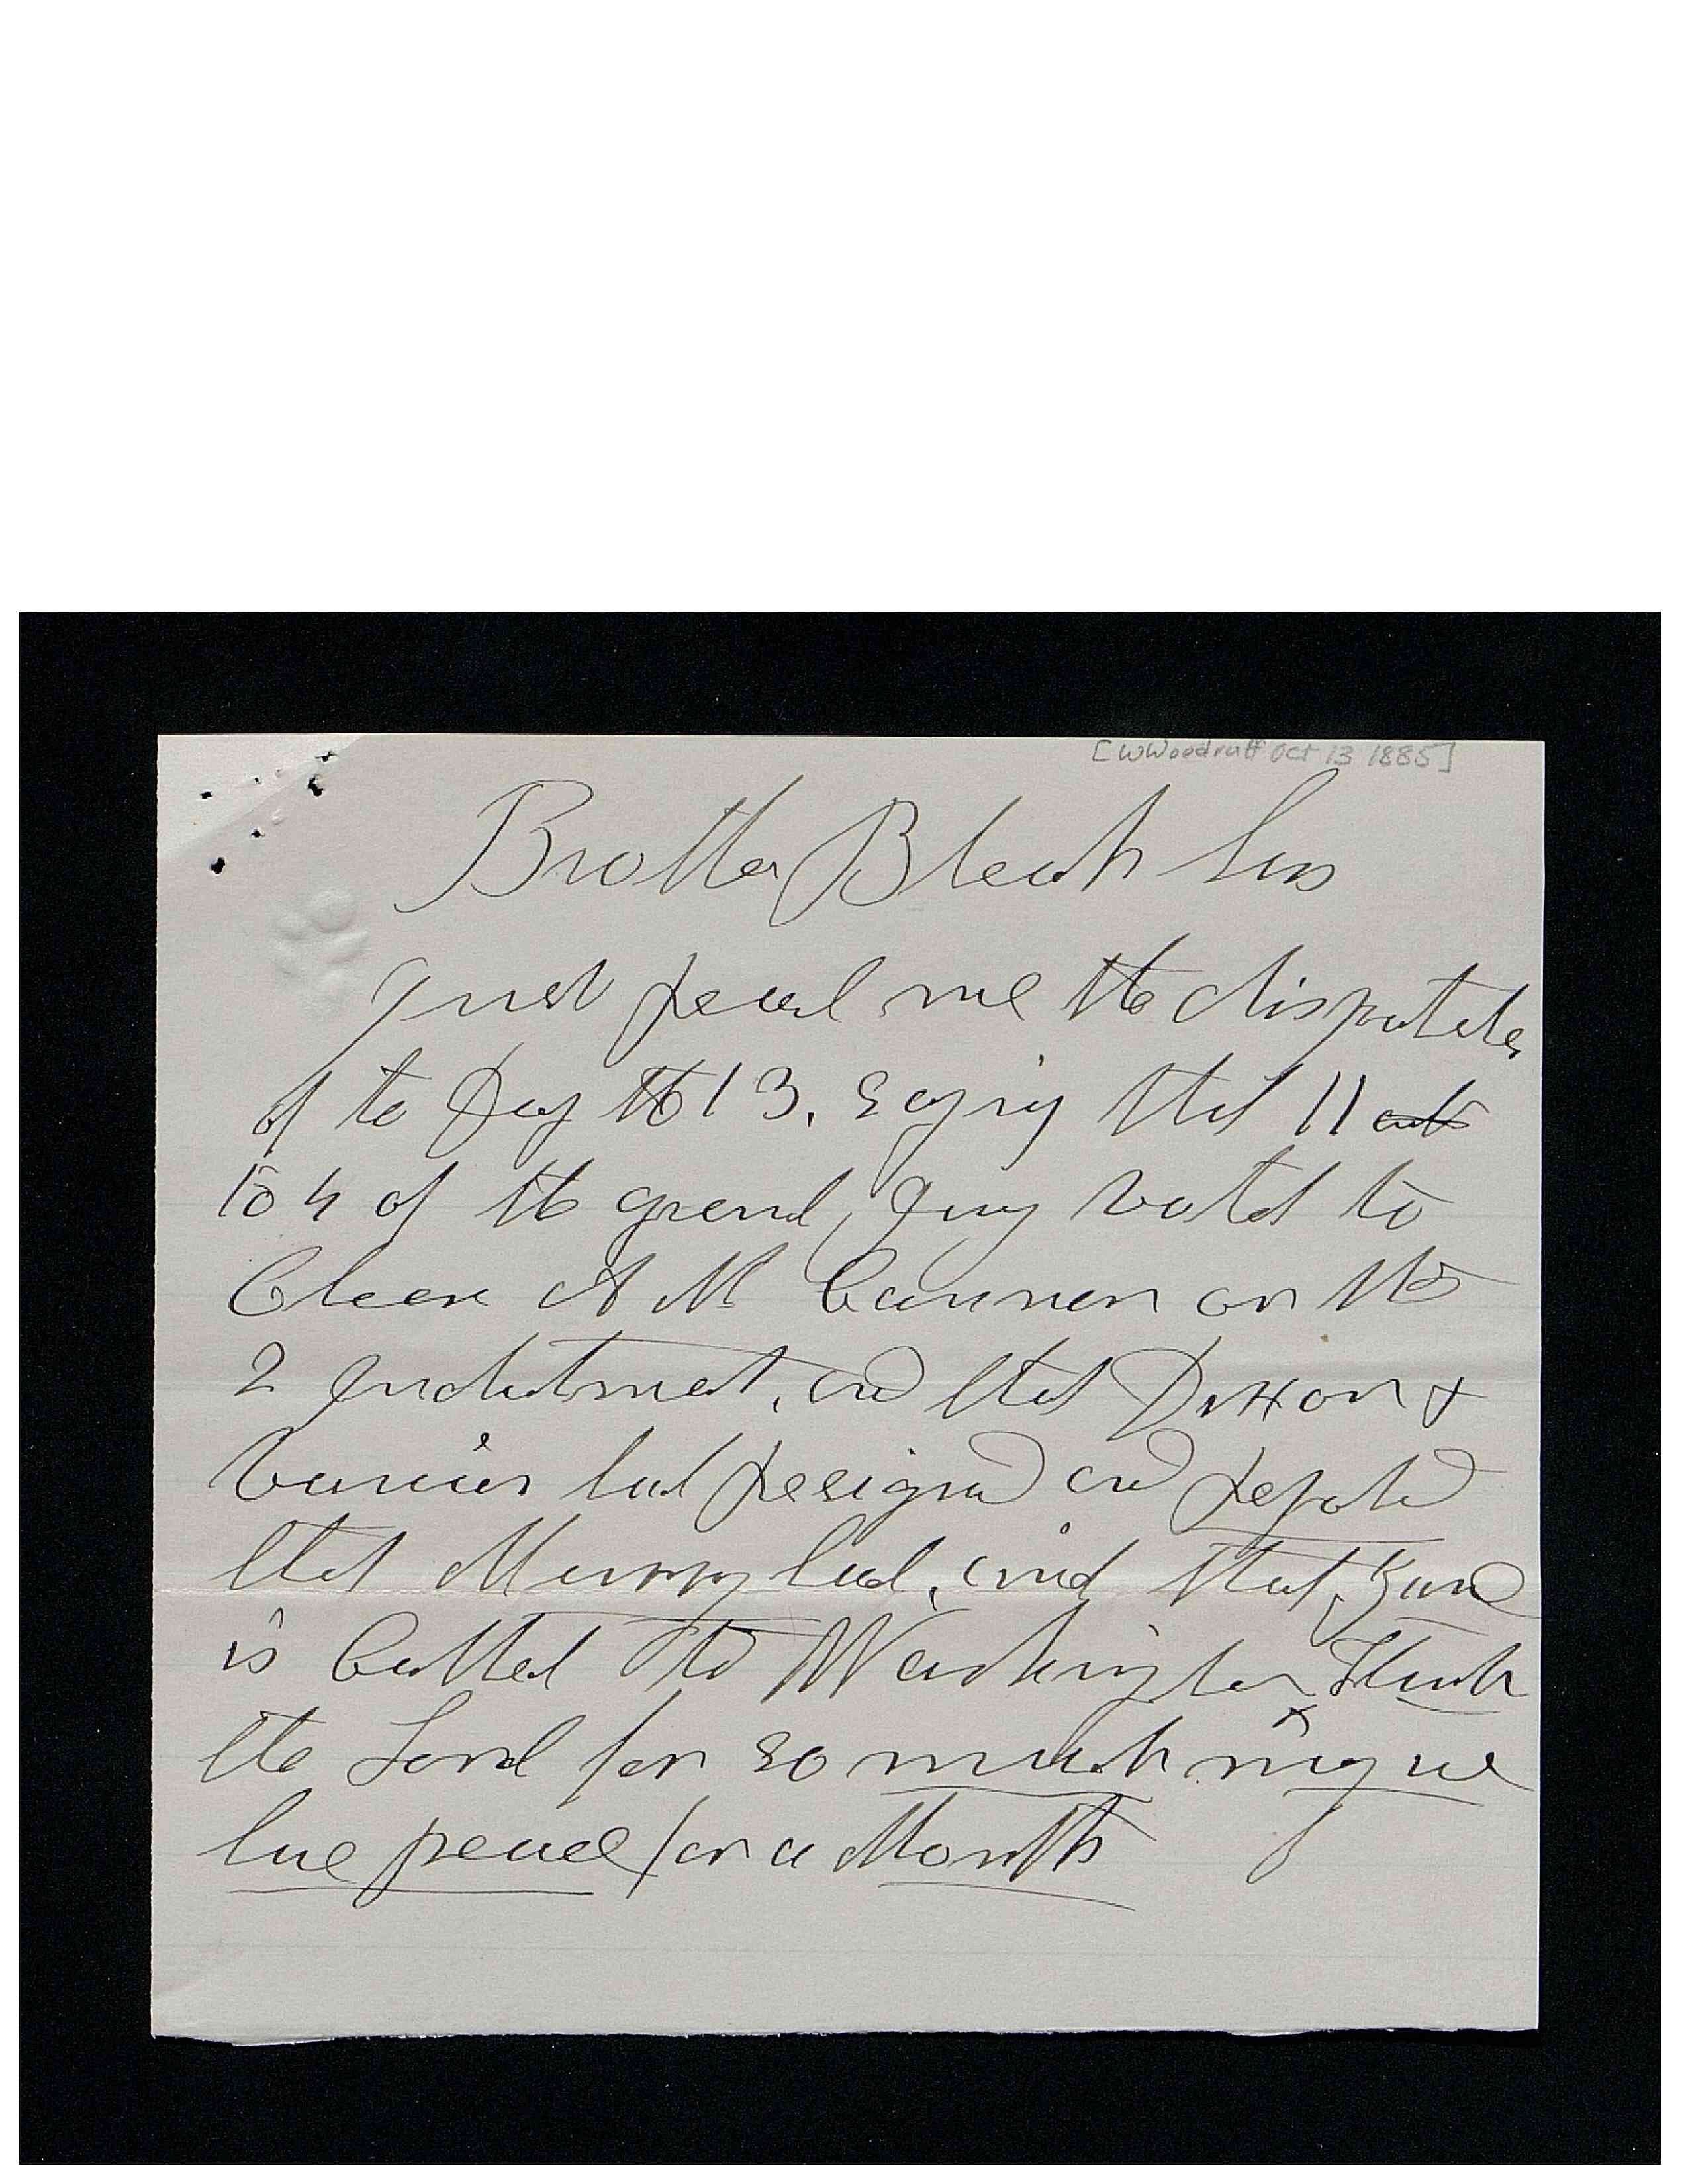 [WWoodruff Oct 13 1885]
Brother Bleak has
Just read me the dispatches
of to Day the 13, saying that 11
to 4 of the grand Jury voted to
Clear A M Cannon on the
2 Indictment, and that Dixon &
Varian had resigned and reported
that Murry had, and that Zane
is Called to Washington Thank
the Lord for so much may we
have peace for a Month